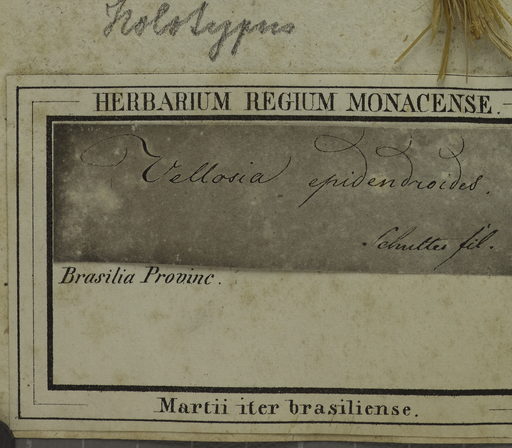 Holotypus
HERBARIUM REGIUM MONACENSE.
Vellosia epidendroides.
Schultes fil.
Brasilia Provinc.
Martii iter brasiliense.